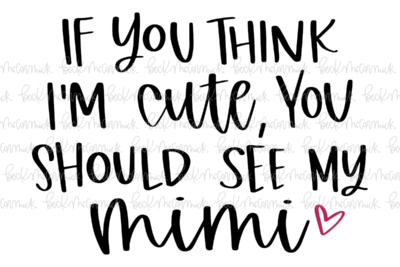 IF YOU THINK
I'M cute, YOU
SHOULD SEE MY
mimi